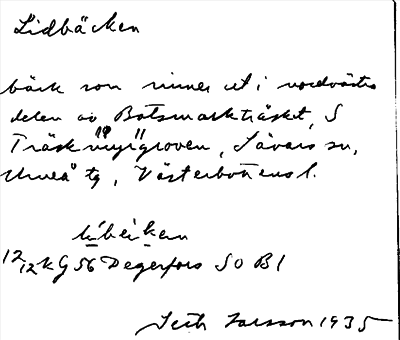 Lidbäcken
bäck som rinner ut i nordvästra
delen av Botsmarkträsket, S
Träsk myrgroven, Sävars sn,
Umeå tg, Västerbottens l.
12/12 KG 56 Degerfors SO Bl
Seth Larsson 1935